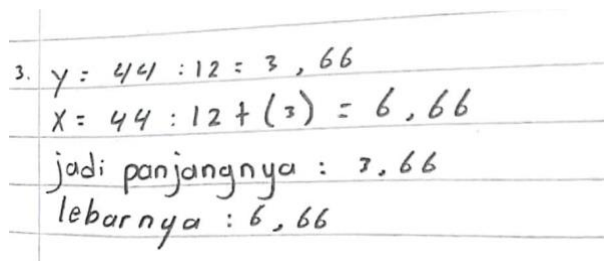 3. y = 44 : 12 = 3,66
x = 44 : 12 + (3) = 6,66
jadi panjangnya : 3,66
lebarnya : 6,66